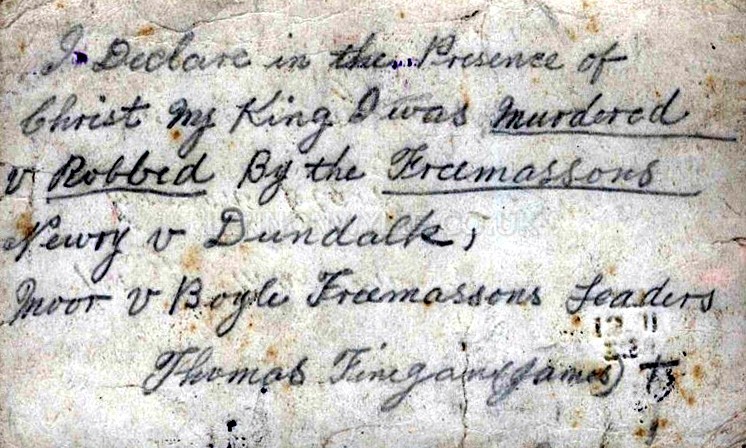 I Declare in the Presence of
Christ My King I was Murdered
v Robbed By the Freemassons
Newry v Dundalk,
Moor v Boyle Freemassons Leaders
Thomas Finegan (James)